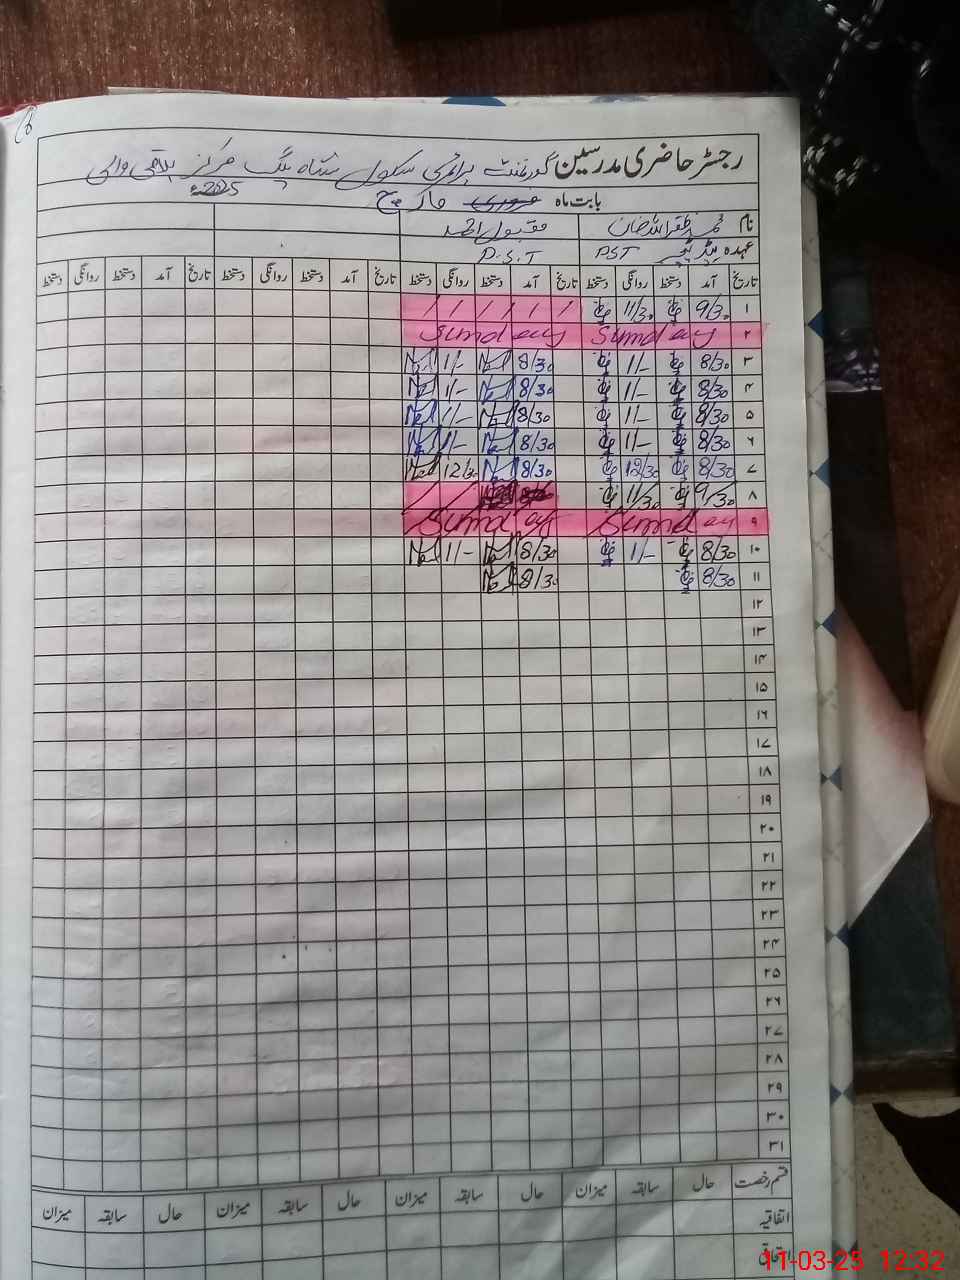 رجسٹر حاضری مدرسین گورنمنٹ پرائمری سکول شاہ بیگ مرکز
بابت ماہ فروری مارچ 2025
نام محمد ظفر اللہ خان مقبول احمد
عہدہ ہیڈ ٹیچر PST P.S.T
تاریخ آمد دستخط روانگی دستخط تاریخ آمد دستخط روانگی دستخط تاریخ آمد دستخط روانگی دستخط تاریخ آمد دستخط روانگی دستخط
۱ 9/30 11/30 / / / / / /
۲ Sunday Sunday
۳ 8/30 1/- 8/30 1/-
۴ 8/30 1/- 8/30 1/-
۵ 8/30 1/- 8/30 1/-
۶ 8/30 1/- 8/30 1/-
۷ 8/30 12/30 8/30 12/30
۸ 9/30 11/30
۹ Sunday Sunday
۱۰ 8/30 1/- 8/30 1/-
۱۱ 8/30 8/30
۱۲
۱۳
۱۴
۱۵
۱۶
۱۷
۱۸
۱۹
۲۰
۲۱
۲۲
۲۳
۲۴
۲۵
۲۶
۲۷
۲۸
۲۹
۳۰
۳۱
قسم رخصت حال سابقہ میزان حال سابقہ میزان حال سابقہ میزان حال سابقہ میزان
اتفاقیہ
11-03-25 12:32